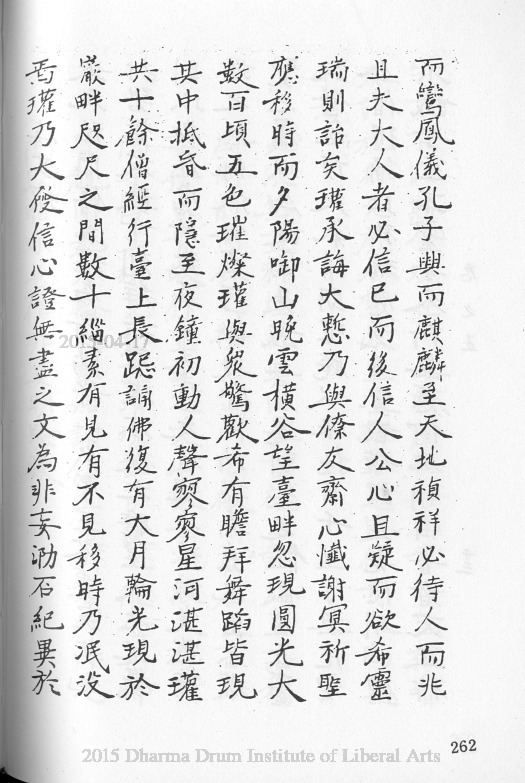 而鸞鳳儀孔子興而麒麟至天地禎祥必待人而兆
且夫大人者必信已而後信人公心且疑而欲希靈
瑞則詣矣瓘承誨大慙乃與僚友齋心懺謝冥祈聖
應移時而夕陽啣山晚雲橫谷望臺畔忽現圓光大
數百頃五色璀燦瓘與眾驚歡希有瞻拜舞蹈皆現
其中抵昏而隱至夜鐘初動人聲寥寥星河湛湛瓘
共十餘僧經行臺上長跽誦佛復有大月輪光現於
巖畔咫尺之間數十緇素有見有不見移時乃泯没
焉瓘乃大發信心證無盡之文為非妄泐石紀異於
262
2015-04-17
2015 Dharma Drum Institute of Liberal Arts